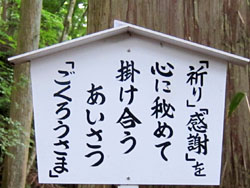 「祈り」「感謝」を
心に秘めて
掛け合う
あいさつ
「ごくろうさま」